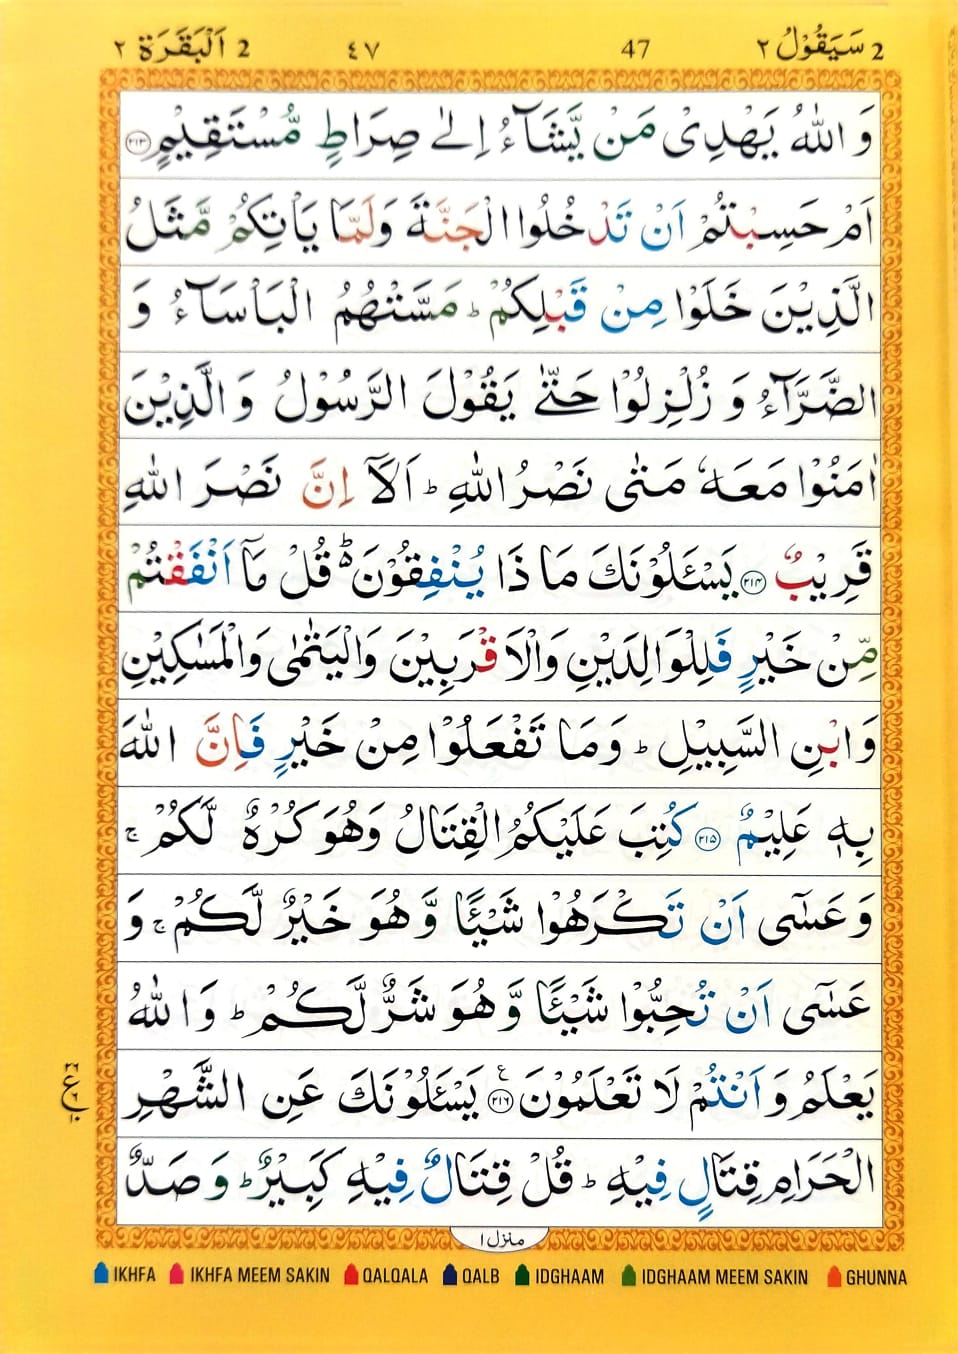 2 سَيَقُوْلُ ٢ 47 ٤٧ 2 اَلْبَقَرَة ٢
وَ اللّٰهُ يَهْدِىْ مَنْ يَّشَآءُ اِلٰى صِرَاطٍ مُّسْتَقِيْمٍ ﴿۲۱۳﴾
اَمْ حَسِبْتُمْ اَنْ تَدْخُلُوا الْجَنَّةَ وَلَمَّا يَاْتِكُمْ مَّثَلُ
الَّذِيْنَ خَلَوْا مِنْ قَبْلِكُمْ ؕ مَسَّتْهُمُ الْبَاْسَآءُ وَ
الضَّرَّآءُ وَ زُلْزِلُوْا حَتّٰى يَقُوْلَ الرَّسُوْلُ وَ الَّذِيْنَ
اٰمَنُوْا مَعَهٗ مَتٰى نَصْرُ اللّٰهِ ؕ اَلَاۤ اِنَّ نَصْرَ اللّٰهِ
قَرِيْبٌ ﴿۲۱۴﴾ يَسْـَٔلُوْنَكَ مَا ذَا يُنْفِقُوْنَ ؕ قُلْ مَاۤ اَنْفَقْتُمْ
مِّنْ خَيْرٍ فَلِلْوَالِدَيْنِ وَالْاَقْرَبِيْنَ وَالْيَتٰمٰى وَالْمَسٰكِيْنِ
وَابْنِ السَّبِيْلِ ؕ وَمَا تَفْعَلُوْا مِنْ خَيْرٍ فَاِنَّ اللّٰهَ
بِهٖ عَلِيْمٌ ﴿۲۱۵﴾ كُتِبَ عَلَيْكُمُ الْقِتَالُ وَهُوَ كُرْهٌ لَّكُمْ ۚ
وَعَسٰٓى اَنْ تَكْرَهُوْا شَيْـًٔا وَّ هُوَ خَيْرٌ لَّكُمْ ۚ وَ
عَسٰٓى اَنْ تُحِبُّوْا شَيْـًٔا وَّ هُوَ شَرٌّ لَّكُمْ ؕ وَ اللّٰهُ
يَعْلَمُ وَ اَنْتُمْ لَا تَعْلَمُوْنَ ﴿۲۱۶﴾ يَسْـَٔلُوْنَكَ عَنِ الشَّهْرِ
الْحَرَامِ قِتَالٍ فِيْهِ ؕ قُلْ قِتَالٌ فِيْهِ كَبِيْرٌ ؕ وَ صَدٌّ
منزل ١
IKHFA IKHFA MEEM SAKIN QALQALA QALB IDGHAAM IDGHAAM MEEM SAKIN GHUNNA